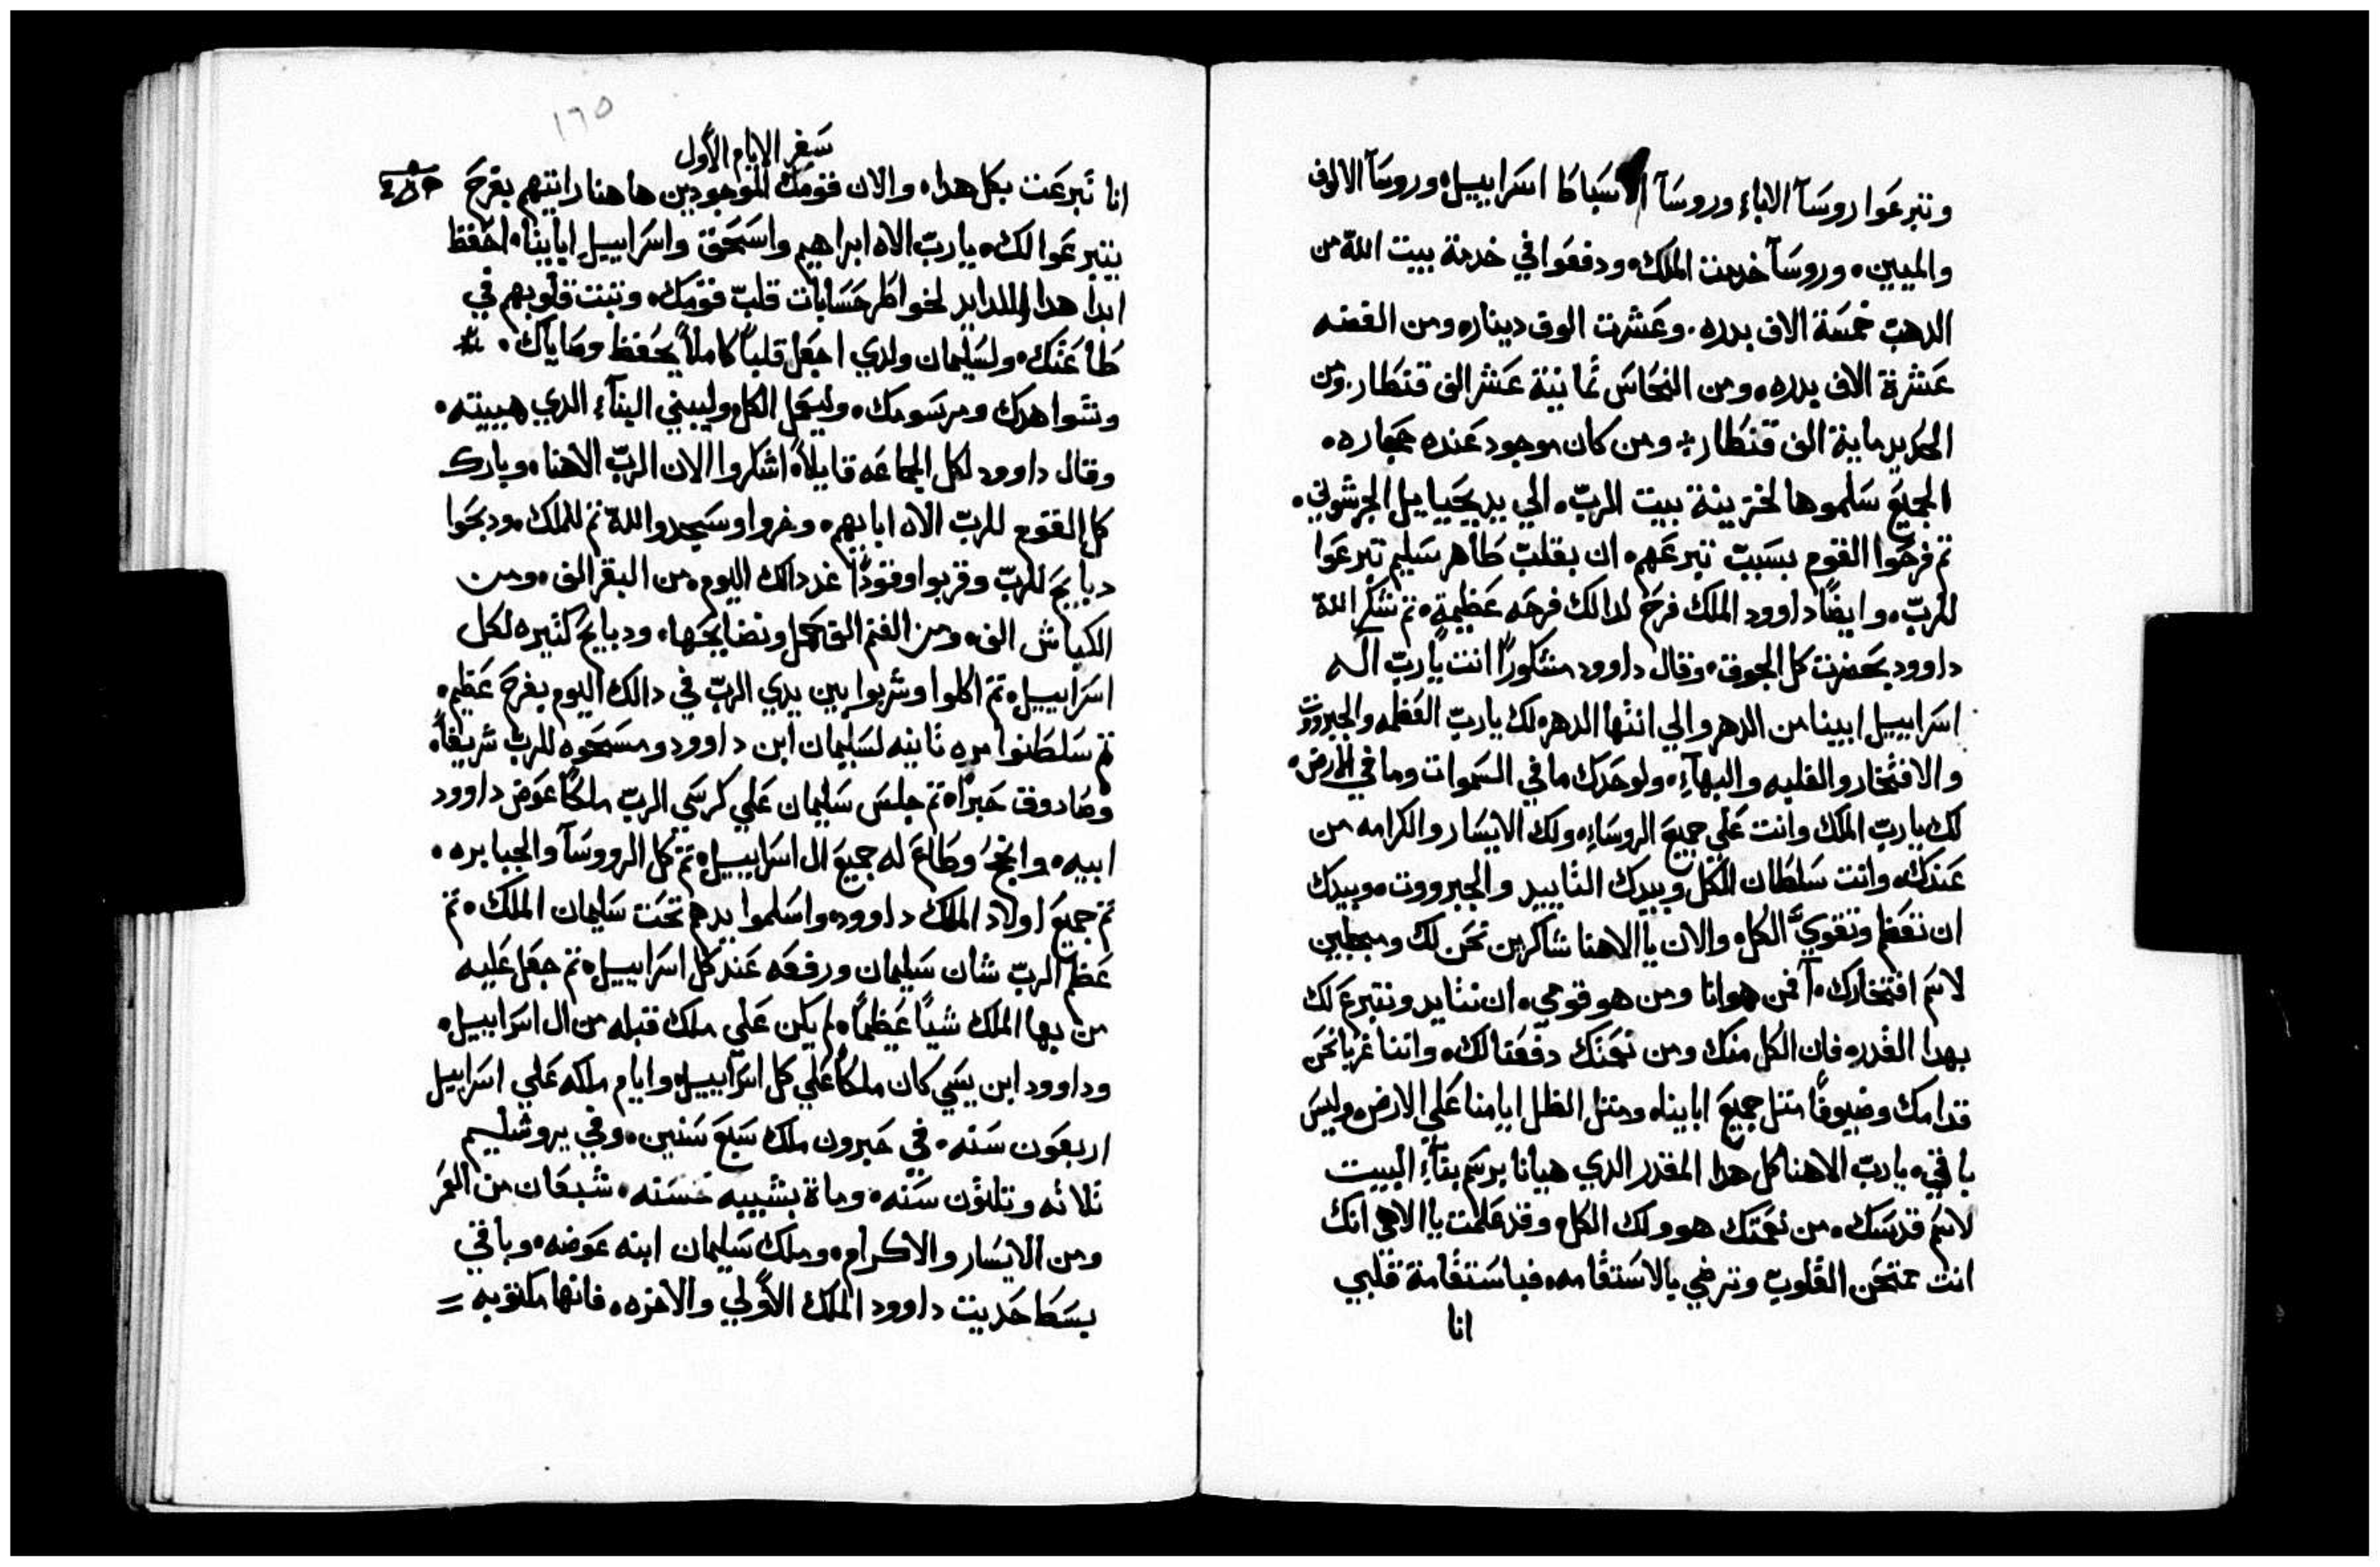 وتبرعوا روسآ الاباء وروسآ الاسباطا اسراييل٠ وروسآ الالوف
والميين٠ وروسآ خدمت الملك٠ ودفعوا في خدمة بيت الله من
الدهب خمسة الاف بدره٠ وعشرت الوف دينار٠ ومن الفضه
عشرة الاف بدره٠ ومن النحاس تمانية عشر الف قنطار٠ ومن
الحديد ماية الف قنطار٠ ومن كان موجود عنده حجاره٠
الجميع سلموها لخزينة بيت الرب٠ الي يد يحياييل الجرشوني٠
تم فرحوا القوم بسبب تبرعهم٠ ان بقلب طاهر سليم تبرعوا
للرب٠ وايضاً داوود الملك فرح لدالك فرحه عظيمة٠ تم شكر الله
داوود بحضرت كل الجوق٠ وقال داوود مشكوراً انت يارب اله
اسراييل ابينا من الدهر والي انتها الدهر٠ لك يارب العظمه والجبروت
والافتخار والغلبه والبهآء٠ ولوحدك ما في السموات وما في الارض٠
لك يارب الملك وانت علي جميع الروساء٠ ولك الايسار والكرامه من
عندك٠ وانت سلطان الكل وبيدك التاييد والجبرووت٠ وبيدك
ان تعظم وتقوي الكل٠ والان يا الاهنا شاكرين نحن لك ومبجلين
لاسم افتخارك٠ آفمن هو انا ومن هو قومي٠ ان نتايد ونتبرع لك
بهدا القدره فان الكل منك ومن نعمتك دفعنا لك٠ واننا غربا نحن
قدامك وضيوفاً متل جميع اباينا٠ ومتل الظل ايامنا علي الارض٠ وليس
باقي٠ يارب الاهنا كل هدا المقدر الدي هيانا برسم بنآء البيت
لاسم قدسك٠ من نعمتك هو ولك الكل٠ وقد علمت يا الاهي انك
انت تمتحن القلوب وترضي بالاستقامه٠ فباستقامة قلبي
انا
١٦٥
سفر الايام الاول
انا تبرعت بكل هدا٠ والان قومك الموجودين هاهنا رايتهم بفرح
يتبرعوا لك٠ يارب الاه ابراهيم واسحق واسراييل اباينا٠ احفظ
ابداً هدا لخواطر حسابات قلب قومك٠ وتبت قلوبهم في
طاعتك٠ ولسليمان ولدي اجعل قلباً كاملاً يحفظ وصاياك٠
وشواهدك ومرسومك٠ وليعمل الكل وليبني البنآء الدي هييته٠
وقال داوود لكل الجماعه قايلاً اشكروا الان الرب الاهنا٠ وبارك
كل القوم للرب الاه ابايهم٠ وخروا وسجدوا لله تم للملك٠ ودبحوا
دبايح للرب وقربوا وقوداً غد دالك اليوم٠ من البقر الف٠ ومن
الكباش الف٠ ومن الغنم الف حمل ونضايحها٠ ودبايح كتيره لكل
اسراييل٠ تم اكلوا وشربوا بين يدي الرب في دالك اليوم بفرح عظيم٠
تم سلطنوا مره تانيه لسليمان ابن داوود ومسحوه للرب شريفاً٠
وصادوق حبراً٠ تم جلس سليمان علي كرسي الرب ملكاً عوض داوود
ابيه٠ وانجح وطاع له جميع ال اسراييل٠ تم كل الرووسآ والجبابره٠
تم جميع اولاد الملك داوود٠ واسلموا يدهم تحت سليمان الملك٠ تم
عظم الرب شان سليمان ورفعه عند كل اسراييل٠ تم جعل عليه
من بها الملك شياً عظيماً٠ لم يكن علي ملك قبله من ال اسراييل٠
وداوود ابن يسي كان ملكاً علي كل اسراييل٠ وايام ملكه علي اسراييل
اربعون سنه٠ في حبرون ملك سبع سنين٠ وفي يروشليم
تلاته وتلتون سنه٠ ومات بشيبه حسنه٠ شبعان من العمر
ومن الايسار والاكرام٠ وملك سليمان ابنه عوضه٠ وباقي
بسط حديت داوود الملك الاولي والاخره٠ فانها مكتوبه =